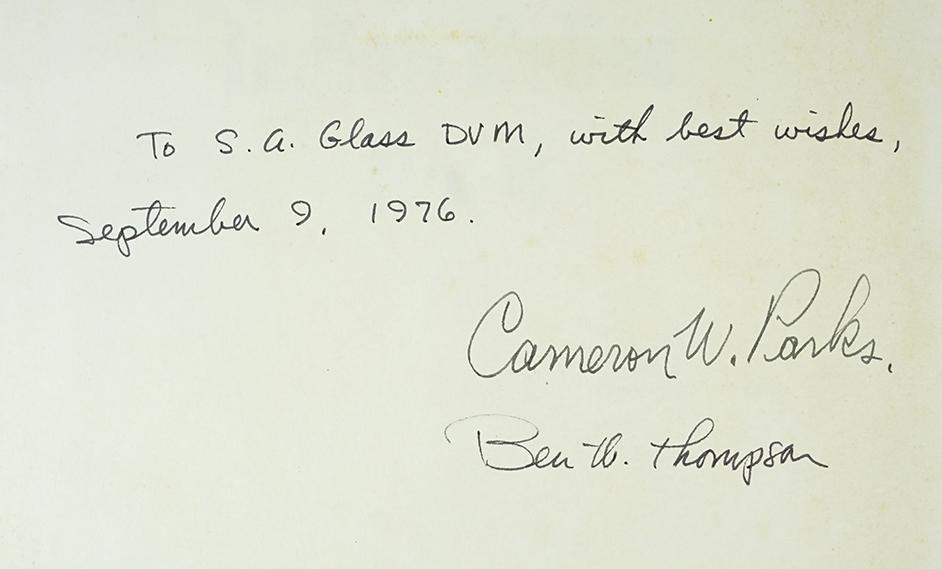 To S. A. Glass DVM, with best wishes,
September 9, 1976.
Cameron W. Parks.
Ben W. Thompson